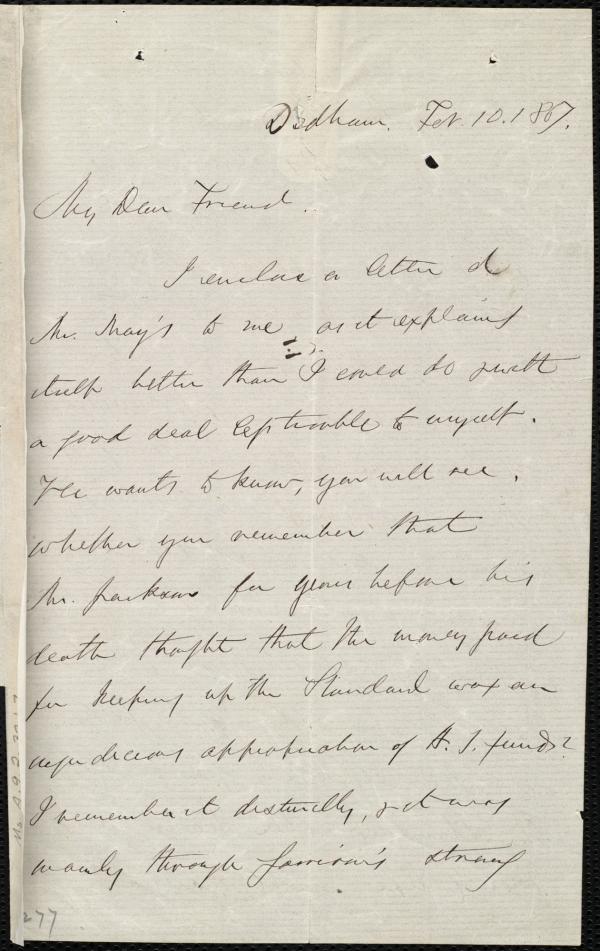 Dedham. Feb. 10. 1867.
My Dear Friend.
I enclose a letter of
Mr. May's to me, as it explains
itself better than I could do & with
a good deal less trouble to myself.
He wants to know, you will see,
whether you remember that
Mr. Jackson for years before his
death thought that the money paid
for keeping up the Standard was an
injudicious appropriation of A. S. funds?
I remember it distinctly, & it was
mainly through Garrison's strong
277